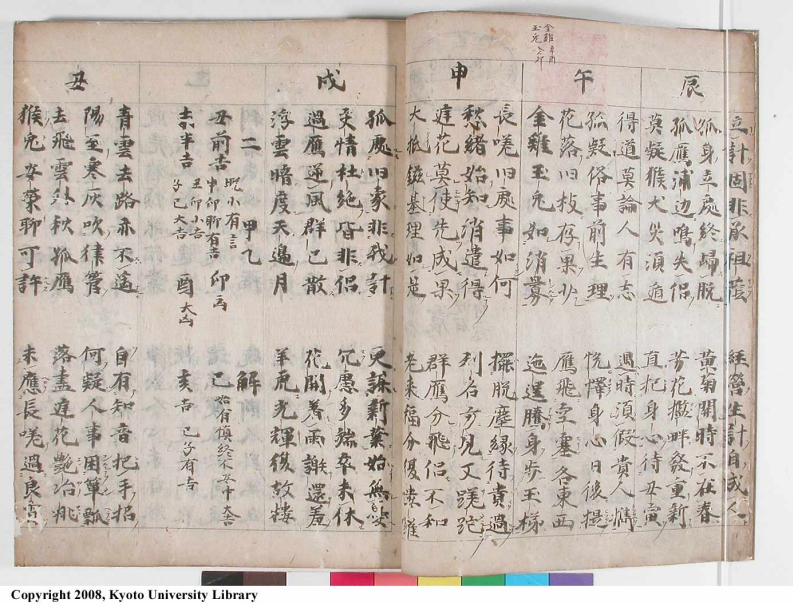 金雞辛酉
玉兎乙卯
立計固非承祖蔭 經營生計自成人
辰
孤身立處終歸脫 黃菊開時不在春
孤鴈浦边鳴失侶 芳花撥畔發重新
莫疑猴犬災須遁 直把身心待丑寅
得道莫論人有志 過時須假貴人
孤疑俗事前生理 悅懌身心日後提
午
花落旧枝存果少 鴈飛空塞各東西
金雞玉兎如消爵 迤邐騰身步玉梯
長嗟旧處事如何 擺脫塵緣待貴過
申
愁緒始知消遣得 列名方見又蹉跎
逢花莫使先成果 群鴈分飛侶不和
大抵鎡基理如是 老来福分優
孤處旧家非我計 更謀新業始無
戌
受情杜絕皆非侶 冗愚多端卒未休
過鴈逆風群已散 花開着雨謝還羞
浮雲暗度天邊月 羊虎光輝復故樓
二 甲乙 解
丑前吉 晚小有言
申卯聊有吉
丑卯小吉 卯凶
巳 始有慎終不安中大吉
未半吉 子巳大吉 酉 大凶 亥吉 巳子有吉
青雲去路亦不遙 自有知音把手招
丑
陽至寒灰吹律管 何疑人事困簞瓢
去飛雲外秋孤鴈 落盡逢花艷冶桃
猴兎安榮聊可許 未應長嗟過良宵
Copyright 2008, Kyoto University Library